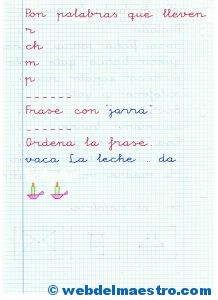 Pon palabras que lleven
r
ch
m
p
Frase con "jarra"
Ordena la frase.
vaca La leche . da
© webdelmaestro.com